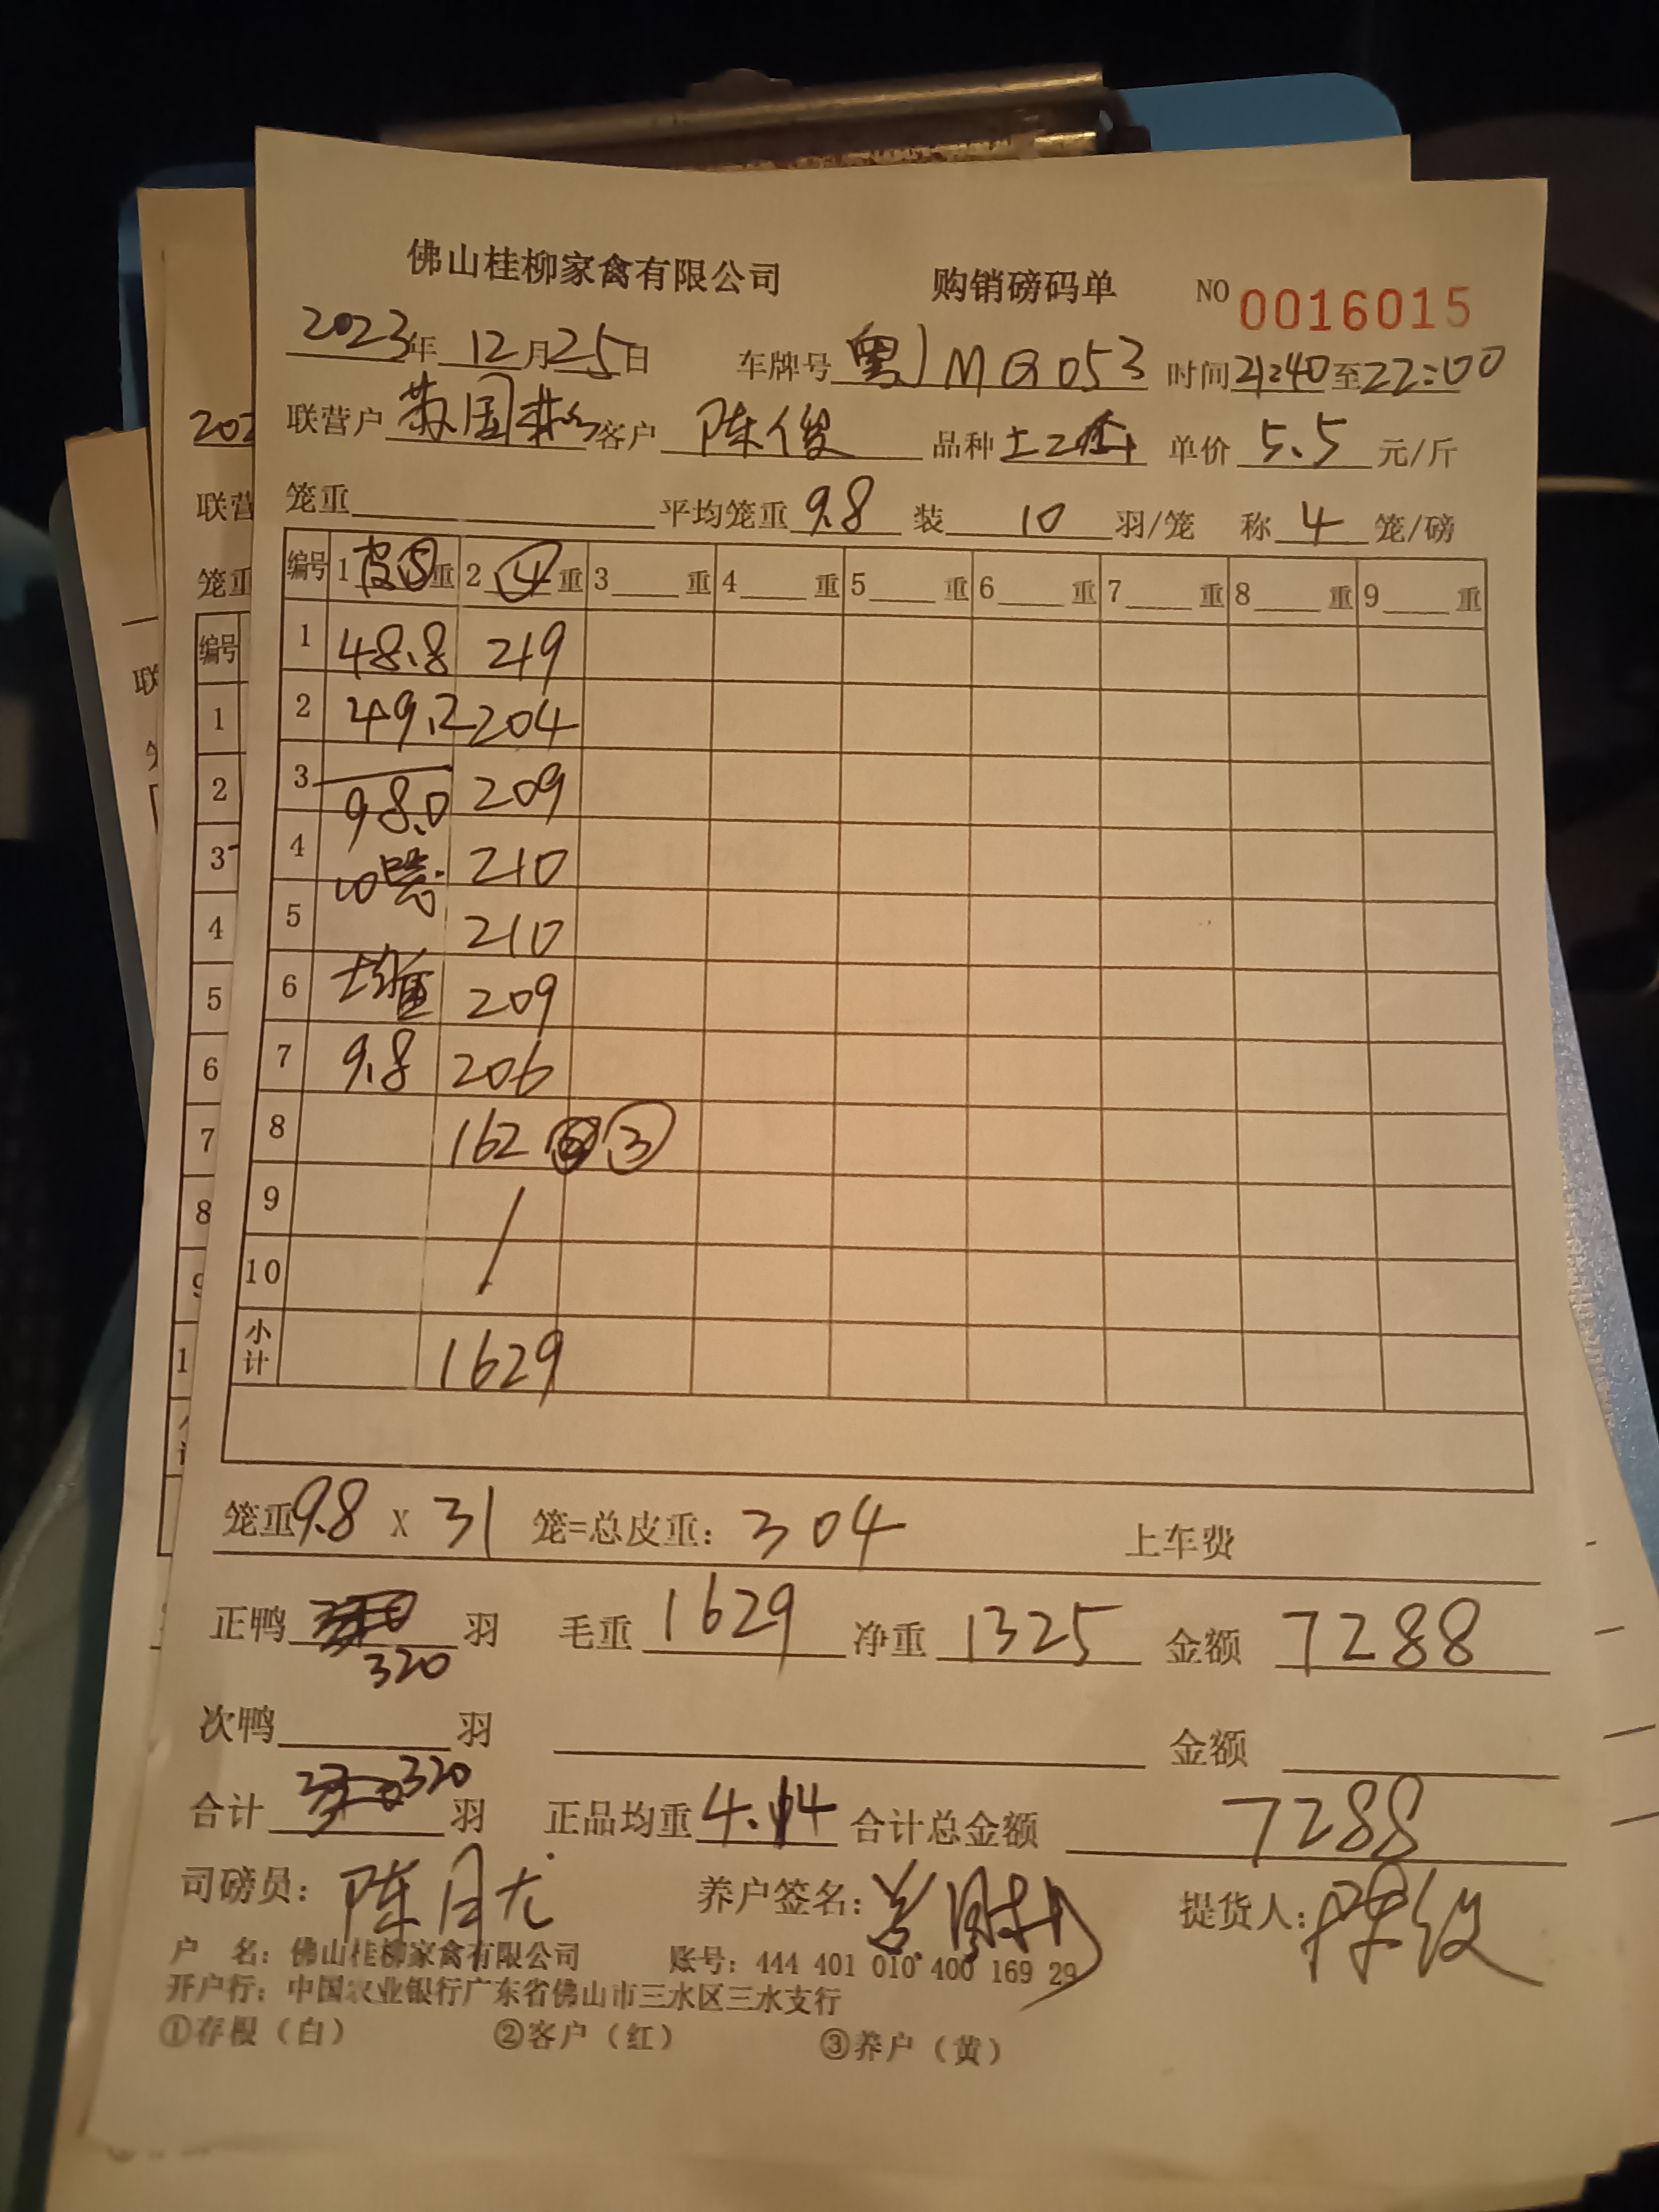 佛山桂柳家禽有限公司 购销磅码单 NO 0016015
2023年12月25日 车牌号 粤JMQ053 时间21:40至22:00
联营户 国 客户 陈俊 品种 土2 单价 5.5 元/斤
笼重 平均笼重 9.8 装 10 羽/笼 称 4 笼/磅
编号 1皮⑤重 2④重 3重 4重 5重 6重 7重 8重 9重
1 48.8 219
2 49.2 204
3 98.0 209
4 10 210
5 210
6 均重 209
7 9.8 206
8 162 ③
9
10
小计 1629
笼重9.8 X 31 笼=总皮重: 304 上车费
正鸭 320 羽 毛重 1629 净重 1325 金额 7288
次鸭 羽 金额
合计 320 羽 正品均重 4.14 合计总金额 7288
司磅员: 陈月尤 养户签名: 提货人: 陈俊
户 名: 佛山桂柳家禽有限公司 账号: 444 401 010 400 169 29
开户行: 中国农业银行广东省佛山市三水区三水支行
①存根（白） ②客户（红） ③养户（黄）
202
联营
笼重
编号
1
2
3
4
5
6
7
8
联